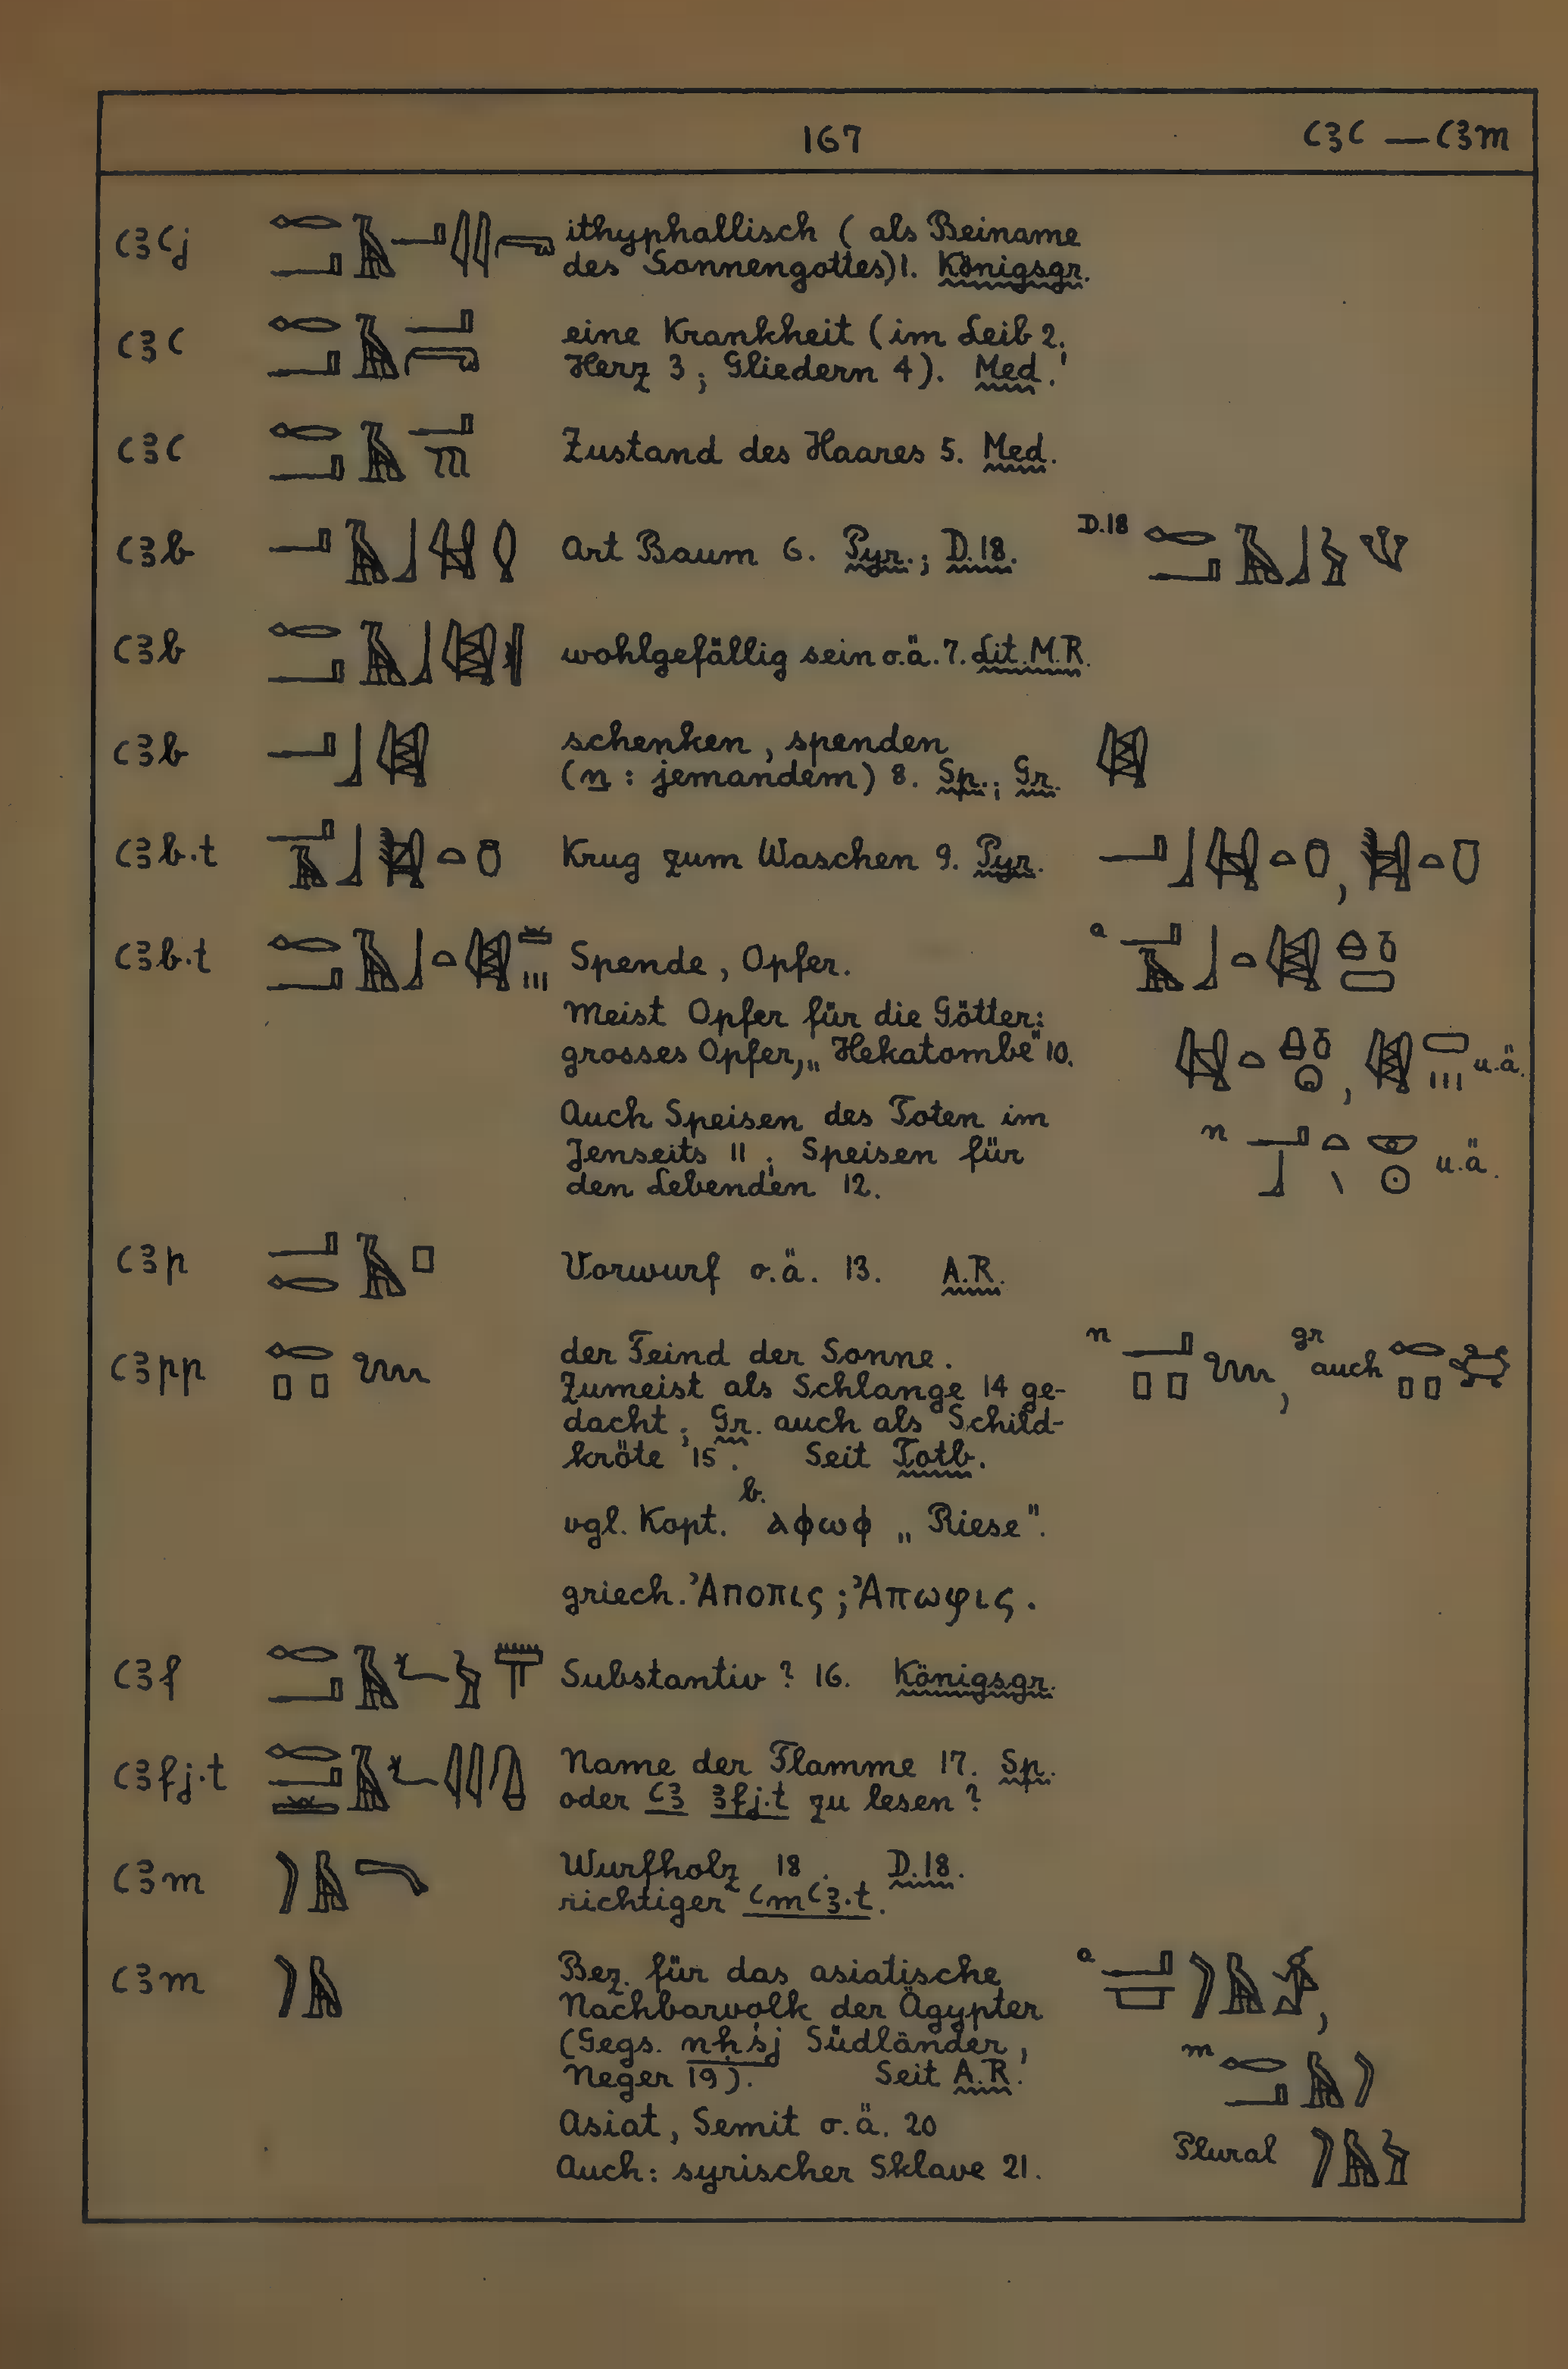 167 ꜥꜣꜥ — ꜥꜣm
ꜥꜣꜥj ithyphallisch ( als Beiname
des Sonnengottes) 1. Königsgr.
ꜥꜣꜥ eine Krankheit ( im Leib 2,
Herz 3 ; Gliedern 4 ). Med.
ꜥꜣꜥ Zustand des Haares 5. Med.
ꜥꜣb Art Baum 6. Pyr. ; D.18. D.18
ꜥꜣb wohlgefällig sein o.ä. 7. Lit. M.R.
ꜥꜣb schenken , spenden
(n : jemandem ) 8. Sp. ; Gr.
ꜥꜣb.t Krug zum Waschen 9. Pyr. ,
ꜥꜣb.t Spende , Opfer. a
Meist Opfer für die Götter:
grosses Opfer, „ Hekatombe" 10. , u.ä.
Auch Speisen des Toten im
Jenseits 11 ; Speisen für n u.ä.
den Lebenden 12.
ꜥꜣp Vorwurf o.ä. 13. A.R.
ꜥꜣpp der Feind der Sonne. n , gr auch
Zumeist als Schlange 14 ge-
dacht ; Gr. auch als Schild-
kröte 15. Seit Totb.
vgl. Kopt. b. ⲁⲫⲱⲫ „ Riese".
griech. Ἀποπις ; Ἀπωφις .
ꜥꜣf Substantiv ? 16. Königsgr.
ꜥꜣfj.t Name der Flamme 17. Sp.
oder ꜥꜣ ꜣfj.t zu lesen ?
ꜥꜣm Wurfholz 18. D.18.
richtiger ꜥmꜥꜣ.t.
ꜥꜣm Bez. für das asiatische a ,
Nachbarvolk der Ägypter
(Gegs. nḥśj Südländer , m
Neger 19 ). Seit A.R.
Asiat , Semit o.ä. 20
Auch : syrischer Sklave 21. Plural